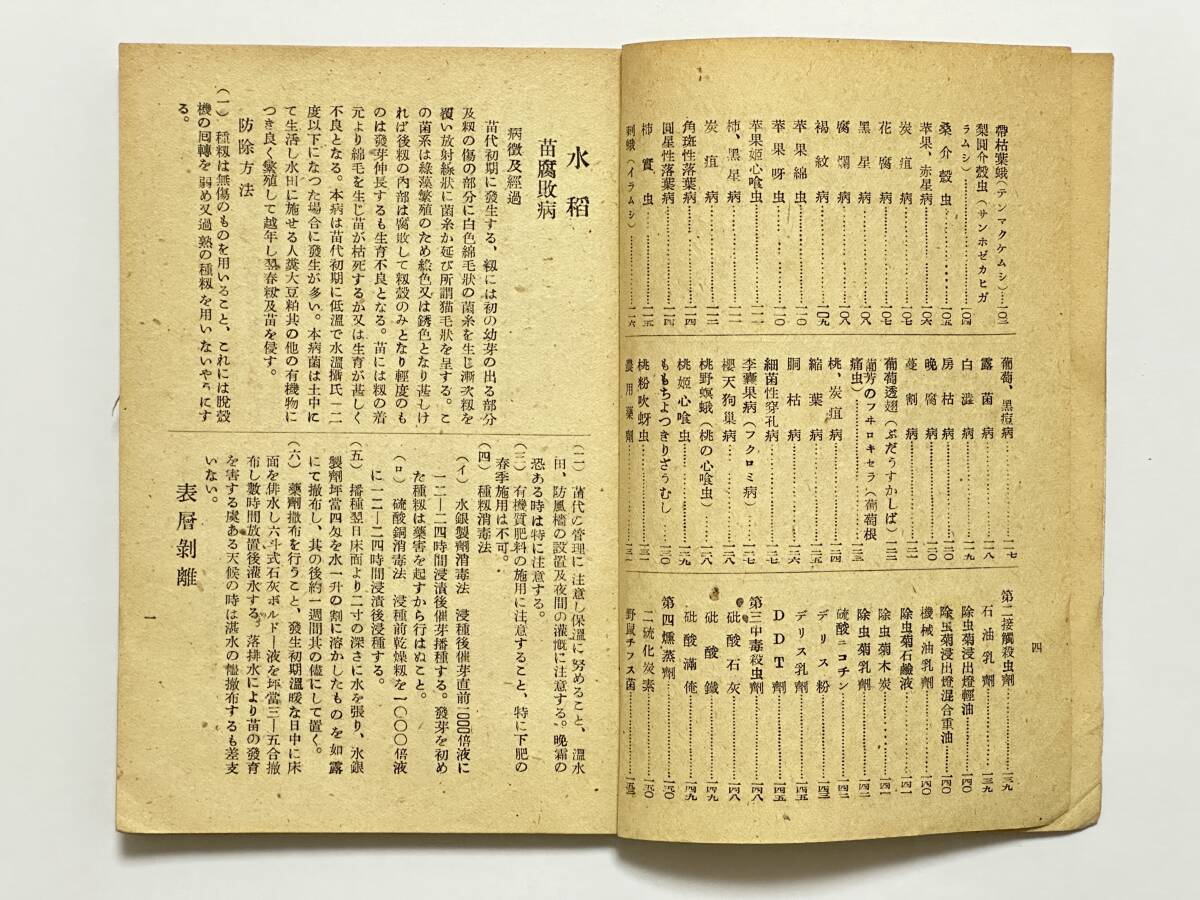 帶枯葉蛾(テンマクケムシ)……一〇三
梨圓介殼虫(サンホゼカヒガ
ラムシ)……一〇四
桑介殼虫……一〇五
苹果、赤星病……一〇六
炭疽病……一〇七
花腐病……一〇七
黑星病……一〇八
腐爛病……一〇八
褐紋病……一〇九
苹果綿虫……一一〇
苹果呀虫……一一〇
苹果姬心喰虫……一一一
柿、黑星病……一一一
炭疽病……一一二
角斑性落葉病……一一四
圓星性落葉病……一一四
柿實虫……一一五
刺蛾(イラムシ)……一一六
葡萄、黑痘病……一一七
露菌病……一一八
白澁病……一一九
房枯病……一二〇
晚腐病……一二〇
蔓割病……一二一
葡萄透翅(ぶだうすかしば)……一二二
葡芳のフヰロキセラ(葡萄根
瘤虫)……一二三
桃、炭疽病……一二四
縮葉病……一二五
胴枯病……一二六
細菌性穿孔病……一二七
李囊果病(フクロミ病)……一二七
櫻天狗巢病……一二八
桃野螟蛾(桃の心喰虫)……一二八
桃姬心喰虫……一二九
ももちよつきりざうむし……一三〇
桃粉吹蚜虫……一三一
農用藥劑……一三一
第二接觸殺虫劑
石油乳劑……一三九
除虫菊浸出燈輕油……一四〇
除虫菊浸出燈混合重油……一四〇
機械油乳劑……一四〇
除虫菊石鹼液……一四一
除虫菊木炭……一四一
除虫菊乳劑……一四二
硫酸ニコチン……一四二
デリス粉……一四三
デリス乳劑……一四五
DDT劑……一四五
第三中毒殺虫劑……一四八
砒酸石灰……一四八
砒酸鐵……一四九
砒酸滿俺……一四九
第四燻蒸劑……一五〇
二硫化炭素……一五〇
野鼠チフス菌……一五二
四
水稻
苗腐敗病
病徵及經過
苗代初期に發生する、籾には初の幼芽の出る部分
及籾の傷の部分に白色綿毛狀の菌糸を生じ漸次籾を
覆い放射線狀に菌糸か延び所謂猫毛狀を呈する。こ
の菌糸は綠藻繁殖のため綠色又は銹色となり甚しけ
れば後籾の內部は腐敗して籾殼のみとなり輕度のも
のは發芽伸長するも生育不良となる。苗には籾の着
元より綿毛を生じ苗が枯死するが又は生育が甚しく
不良となる。本病は苗代初期に低溫で水溫攝氏一二
度以下になつた場合に發生が多い。本病菌は土中に
て生活し水田に施せる人糞大豆粕其の他の有機物に
つき良く繁殖して越年し翌春籾及苗を侵す。
防除方法
(一) 種籾は無傷のものを用いること、これには脫殼
機の囘轉を弱め又過熟の種籾を用いないやうにす
る。
(二) 苗代の管理に注意し保溫に努めること、溫水
田、防風檣の設置及夜間の灌漑に注意する。晩霜の
恐ある時は特に注意する。
(三) 有機質肥料の施用に注意すること、特に下肥の
春季施用は不可。
(四) 種籾消毒法
(イ) 水銀製劑消毒法 浸種後催芽直前一〇〇〇倍液に
一二―二四時間浸漬後催芽播種する。發芽を初め
た種籾は藥害を起すから行はぬこと。
(ロ) 硫酸銅消毒法 浸種前乾燥籾を一〇〇〇倍液
に一二―二四時間浸漬後浸種する。
(五) 播種翌日床面より二寸の深さに水を張り、水銀
製劑坪當四匁を水一升の割に溶かしたものを如露
にて撒布し、其の後約一週間其の儘にして置く。
(六) 藥劑撒布を行うこと、發生初期溫暖な日中に床
面を排水し六斗式石灰ボルドー液を坪當三―五合撒
布し數時間放置後灌水する。落排水により苗の發育
を害する虞ある天候の時は湛水の儘撒布するも差支
いない。
表層剝離
一